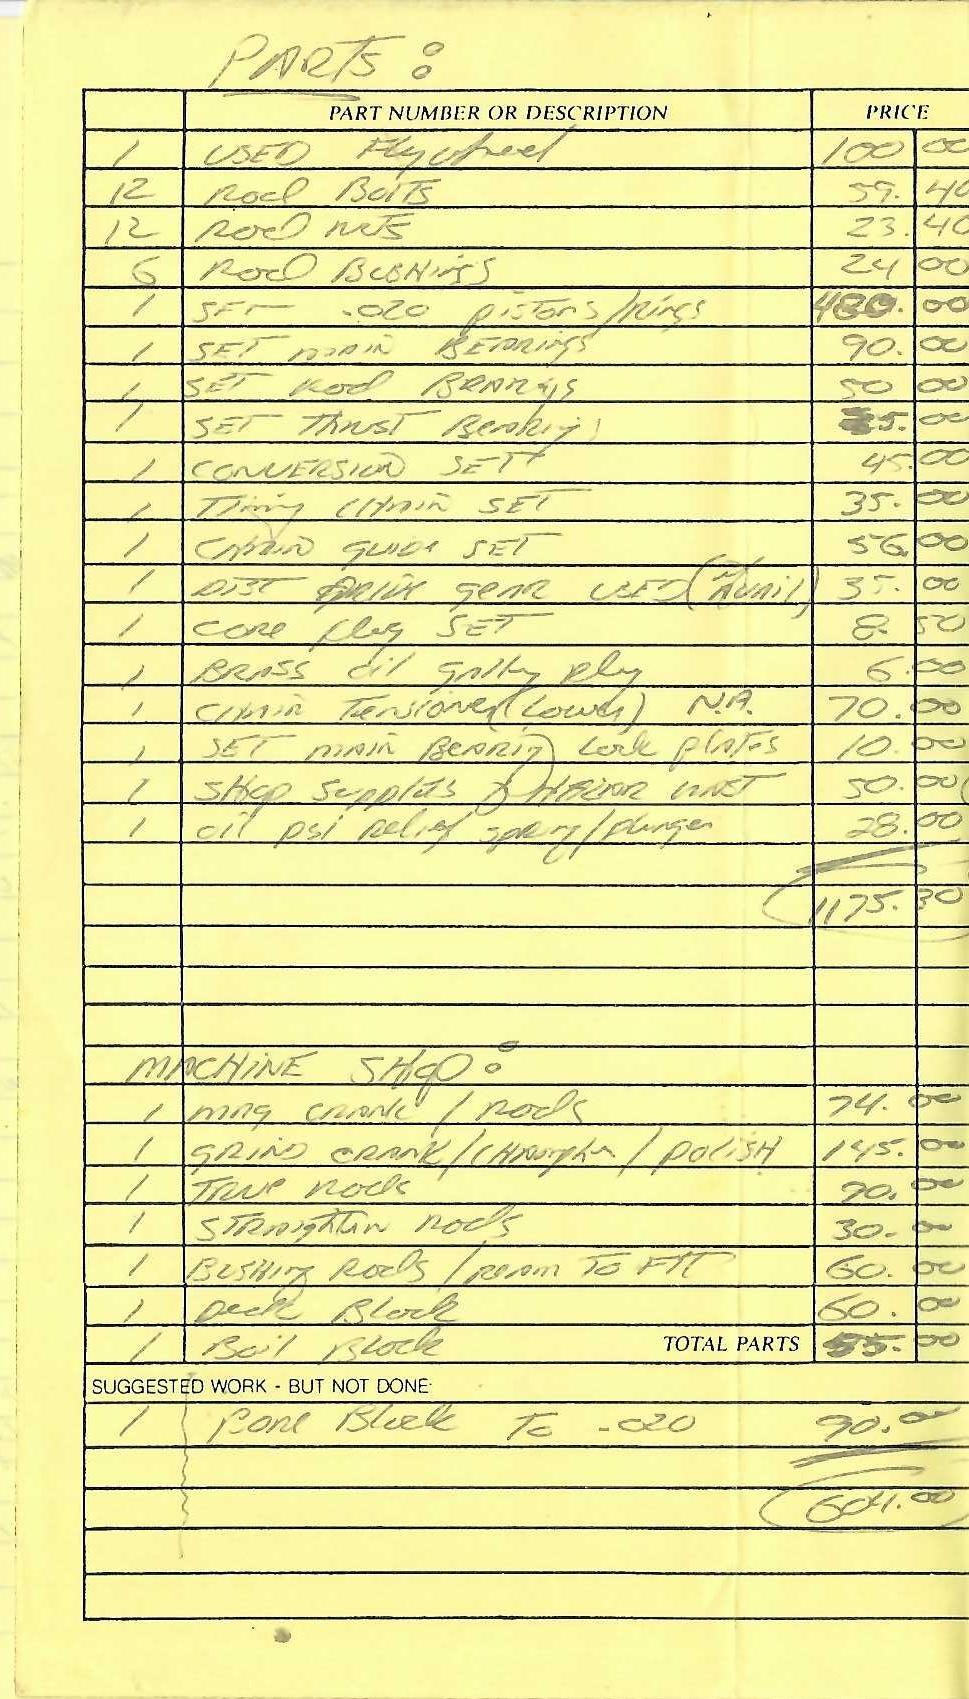 PARTS:
PART NUMBER OR DESCRIPTION PRICE
1 USED Flywheel 100 00
12 Rod BolTS 59. 40
12 Rod nuTS 23. 40
6 Rod BUSHINGS 24 00
1 SET .020 pistons/Rings 480. 00
1 SET MAIN BEARINGS 90. 00
1 SET Rod BEARINGS 50 00
1 SET Thrust Bearing 00
1 CONVERSION SET 45. 00
1 Timing CHAIN SET 35. 00
1 CHAIN GUIDE SET 56. 00
1 DIST DRIVE GEAR USED 35. 00
1 CORE plug SET 8. 50
1 BRASS oil galley plug 6. 00
1 CHAIN Tensioner (Lower) N.A. 70. 00
1 SET MAIN BEARING Lock plATES 10. 00
1 SHOP Supplies 50. 00
1 oil psi Relief spring/plunger 28. 00
1175. 30
MACHINE SHOP:
1 MAG CRANK / Rods 74. 00
1 GRIND CRANK / CHAMPHER / POLISH 145. 00
1 TRUE Rods 90. 00
1 STRAIGHTEN Rods 30. 00
1 BUSHING Rods / REAM To FIT 60. 00
1 DECK BLOCK 60. 00
1 Boil Block TOTAL PARTS 55. 00
SUGGESTED WORK - BUT NOT DONE:
1 BORE Block To .020 90. 00
604. 00